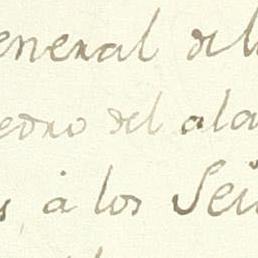 eneral del
edro del ala
s, à los Señ